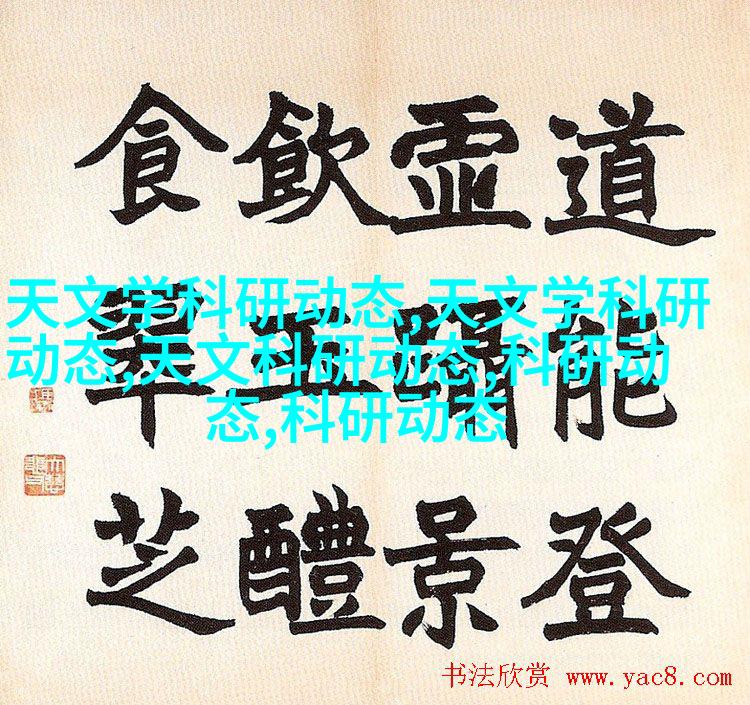 道能登
景
飲玉醴
食翠芝
天文学科研动态,天文学科研
动态,天文科研动态,科研动
态,科研动态
书法欣赏 www.yac8.com